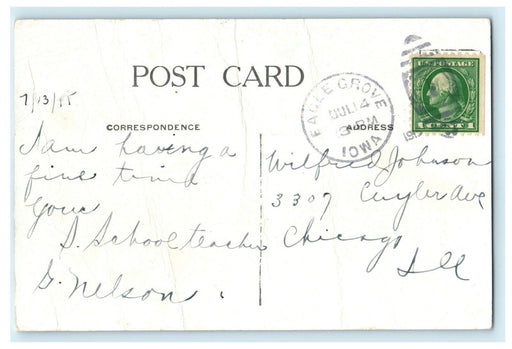 POST CARD
7/13/15
CORRESPONDENCE
ADDRESS
EAGLE GROVE
JUL 14
3 PM
IOWA
U.S. POSTAGE
1 CENT 1
I am having a
fine time
Your
S. School teacher
G. Nelson.
Wilfred Johnson
3307 Cuyler Ave
Chicago
Ill